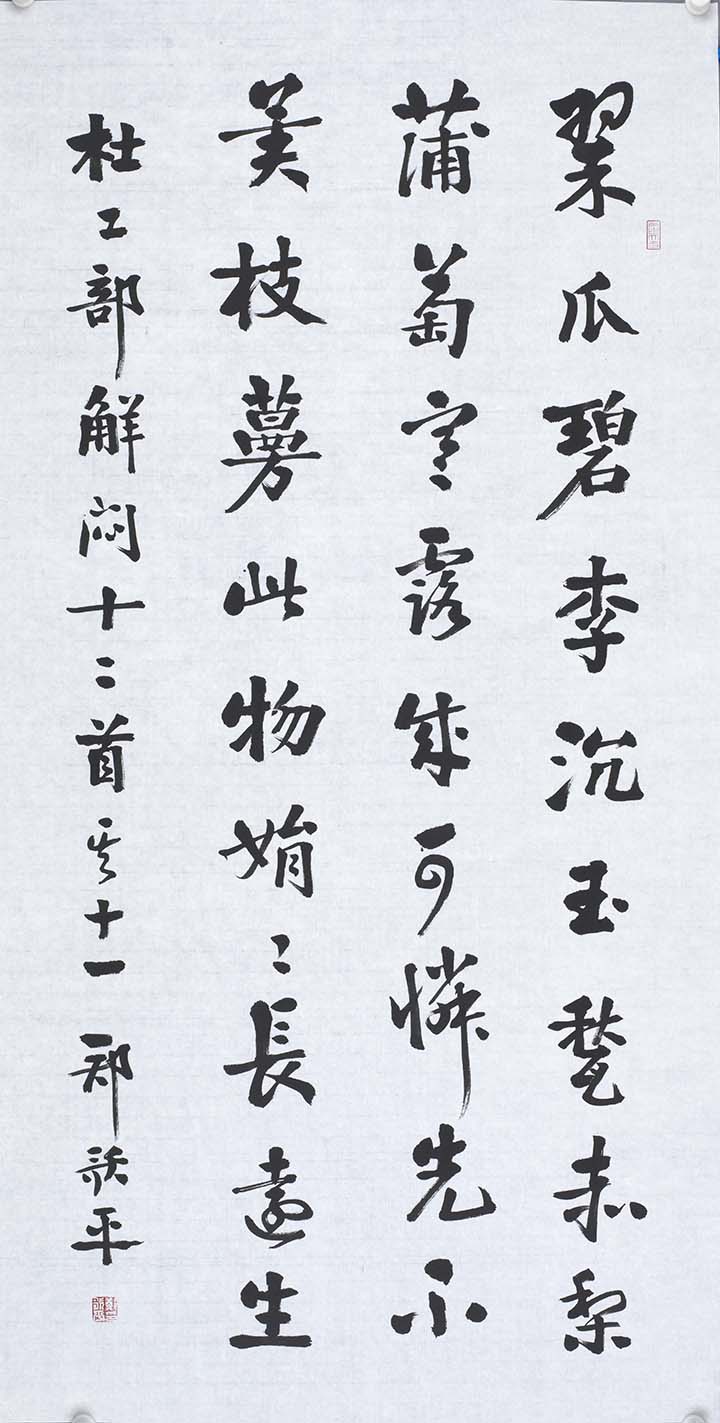 翠瓜碧李沉玉甃赤梨
蒲萄寒露成可憐先不
異枝蔓此物娟〻長遠生
杜工部解悶十二首其十一 鄭平